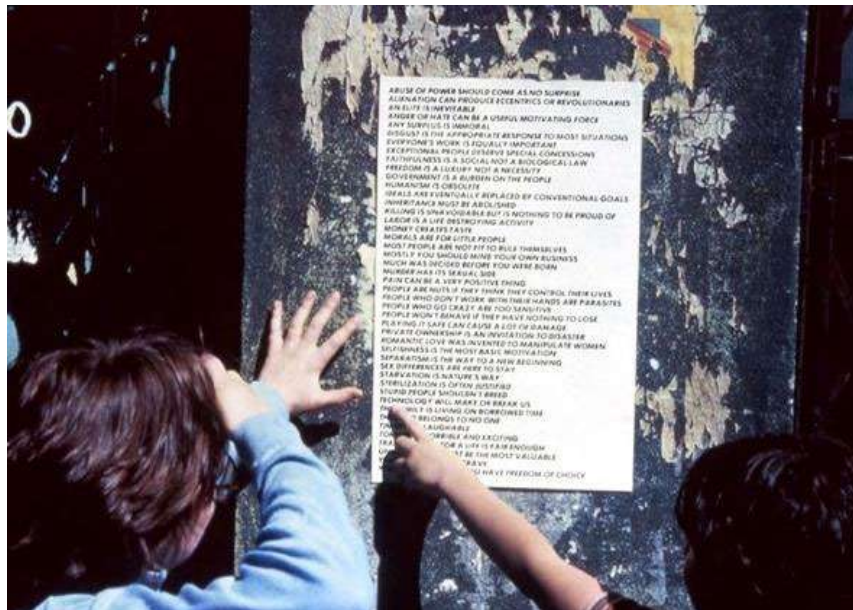 ABUSE OF POWER SHOULD COME AS NO SURPRISE
ALIENATION CAN PRODUCE ECCENTRICS OR REVOLUTIONARIES
AN ELITE IS INEVITABLE
ANGER OR HATE CAN BE A USEFUL MOTIVATING FORCE
ANY SURPLUS IS IMMORAL
DISGUST IS THE APPROPRIATE RESPONSE TO MOST SITUATIONS
EVERYONE'S WORK IS EQUALLY IMPORTANT
EXCEPTIONAL PEOPLE DESERVE SPECIAL CONCESSIONS
FAITHFULNESS IS A SOCIAL NOT A BIOLOGICAL LAW
FREEDOM IS A LUXURY NOT A NECESSITY
GOVERNMENT IS A BURDEN ON THE PEOPLE
HUMANISM IS OBSOLETE
IDEALS ARE EVENTUALLY REPLACED BY CONVENTIONAL GOALS
INHERITANCE MUST BE ABOLISHED
KILLING IS UNAVOIDABLE BUT IS NOTHING TO BE PROUD OF
LABOR IS A LIFE DESTROYING ACTIVITY
MONEY CREATES TASTE
MORALS ARE FOR LITTLE PEOPLE
MOST PEOPLE ARE NOT FIT TO RULE THEMSELVES
MOSTLY YOU SHOULD MIND YOUR OWN BUSINESS
MUCH WAS DECIDED BEFORE YOU WERE BORN
MURDER HAS ITS SEXUAL SIDE
PAIN CAN BE A VERY POSITIVE THING
PEOPLE ARE NUTS IF THEY THINK THEY CONTROL THEIR LIVES
PEOPLE WHO DON'T WORK WITH THEIR HANDS ARE PARASITES
PEOPLE WHO GO CRAZY ARE TOO SENSITIVE
PEOPLE WON'T BEHAVE IF THEY HAVE NOTHING TO LOSE
PLAYING IT SAFE CAN CAUSE A LOT OF DAMAGE
PRIVATE OWNERSHIP IS AN INVITATION TO DISASTER
ROMANTIC LOVE WAS INVENTED TO MANIPULATE WOMEN
SELFISHNESS IS THE MOST BASIC MOTIVATION
SEPARATISM IS THE WAY TO A NEW BEGINNING
SEX DIFFERENCES ARE HERE TO STAY
STARVATION IS NATURE'S WAY
STERILIZATION IS OFTEN JUSTIFIED
STUPID PEOPLE SHOULDN'T BREED
TECHNOLOGY WILL MAKE OR BREAK US
IS LIVING ON BORROWED TIME
BELONGS TO NO ONE
LAUGHABLE
HORRIBLE AND EXCITING
FOR A LIFE IS FAIR ENOUGH
BE THE MOST VALUABLE
HAVE FREEDOM OF CHOICE